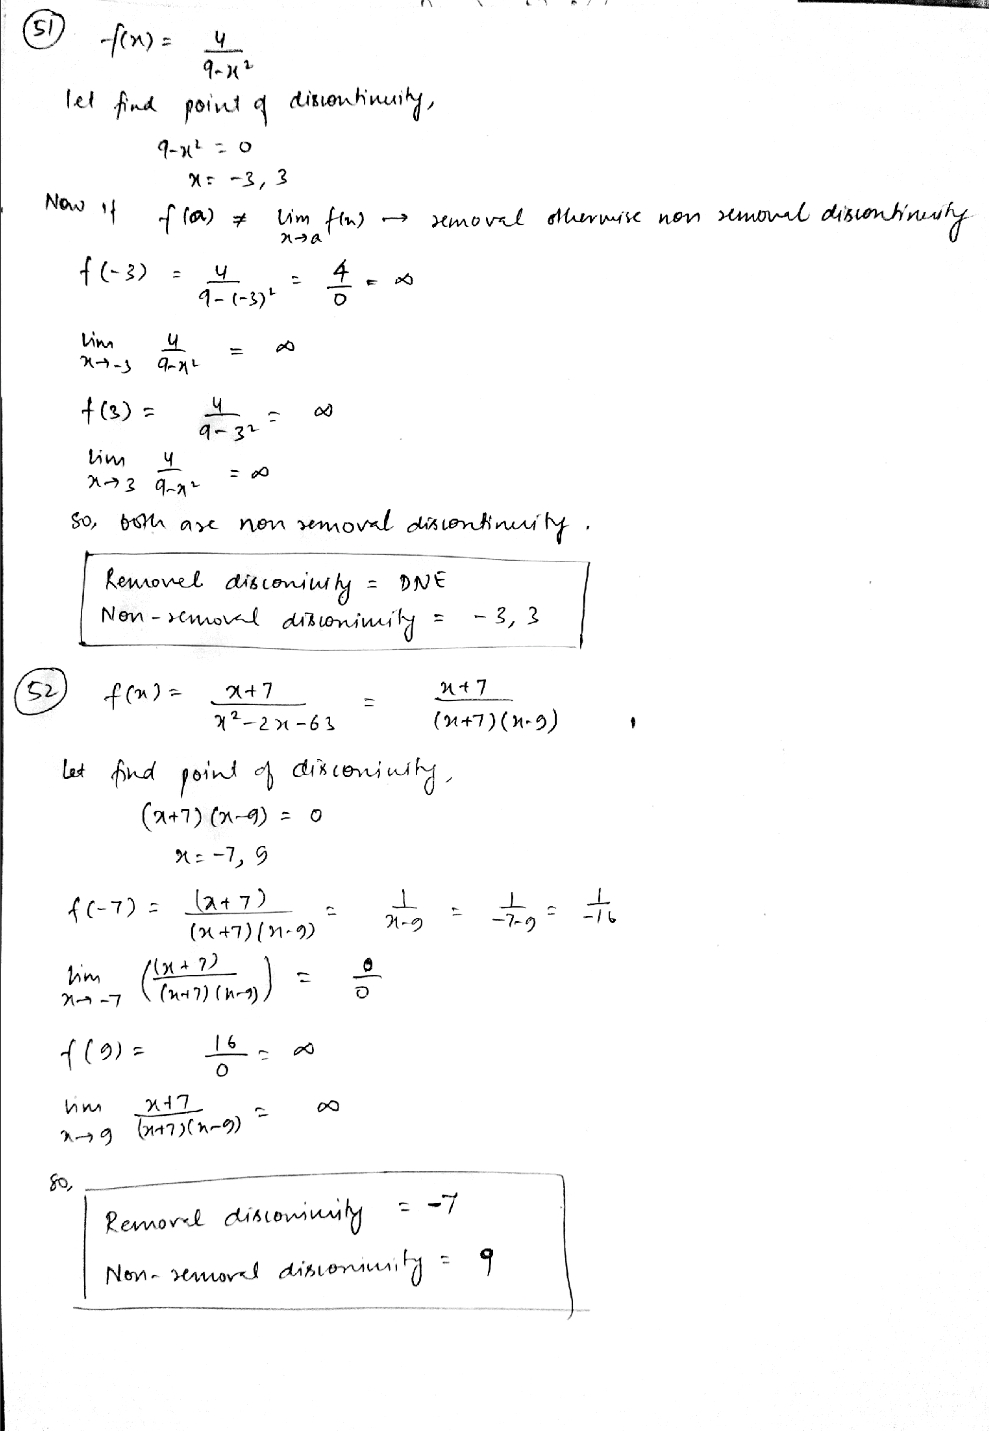 51 f(x) = 4/(9-x²)
let find point of discontinuity,
9-x² = 0
x = -3, 3
Now if f(a) ≠ lim x→a f(x) → removal otherwise non removal discontinuity
f(-3) = 4/(9-(-3)²) = 4/0 = ∞
lim x→-3 4/(9-x²) = ∞
f(3) = 4/(9-3²) = ∞
lim x→3 4/(9-x²) = ∞
so, both are non removal discontinuity.
Removel disconinity = DNE
Non-removal disconinity = -3, 3
52 f(x) = (x+7)/(x²-2x-63) = (x+7)/((x+7)(x-9)),
Let find point of disconinity,
(x+7)(x-9) = 0
x = -7, 9
f(-7) = (x+7)/((x+7)(x-9)) = 1/(x-9) = 1/(-7-9) = 1/-16
lim x→-7 ((x+7)/((x+7)(x-9))) = 0/0
f(9) = 16/0 = ∞
lim x→9 (x+7)/((x+7)(x-9)) = ∞
so,
Removal disconinity = -7
Non-removal disconinity = 9